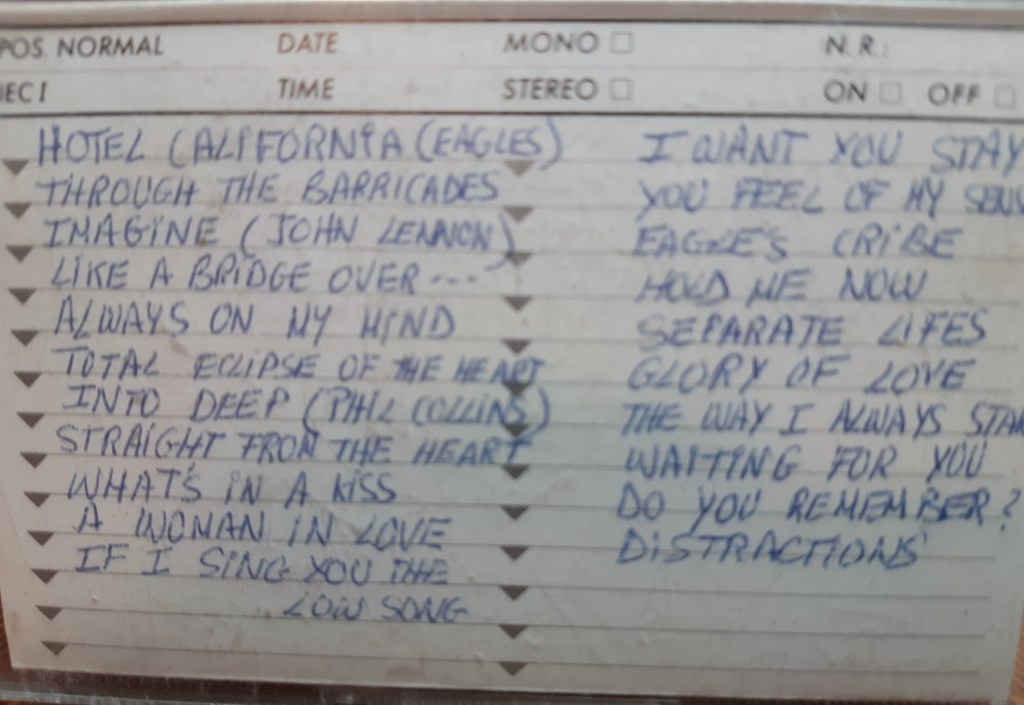 POS. NORMAL DATE MONO N. R.:
IEC I TIME STEREO ON OFF
HOTEL CALIFORNIA (EAGLES)
THROUGH THE BARRICADES
IMAGINE (JOHN LENNON)
LIKE A BRIDGE OVER ---
ALWAYS ON MY MIND
TOTAL ECLIPSE OF THE HEART
INTO DEEP (PHIL COLLINS)
STRAIGHT FROM THE HEART
WHAT'S IN A KISS
A WOMAN IN LOVE
IF I SING YOU THE
LOW SONG
I WANT YOU STAY
YOU FEEL OF MY SENS
EAGLE'S CRIBE
HOLD ME NOW
SEPARATE LIFES
GLORY OF LOVE
THE WAY I ALWAYS STAR
WAITING FOR YOU
DO YOU REMEMBER?
DISTRACTIONS